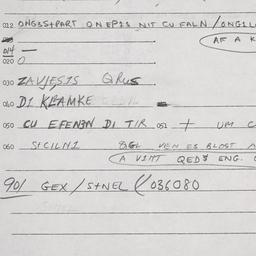 012 ONGBS+PART ONEPIS NIT CU FALN / ONGIL
AF A K
014 —
020 O
030 ZAVJESIS QRUS
040 DI KLAMKE
050 CU EFENBN DI TIR 051 + UM C
060 SICILNI BGL VEN ES BLOST A
A VSMT QED$ ENG.
90/ GEX / S+NEL (/ 036080